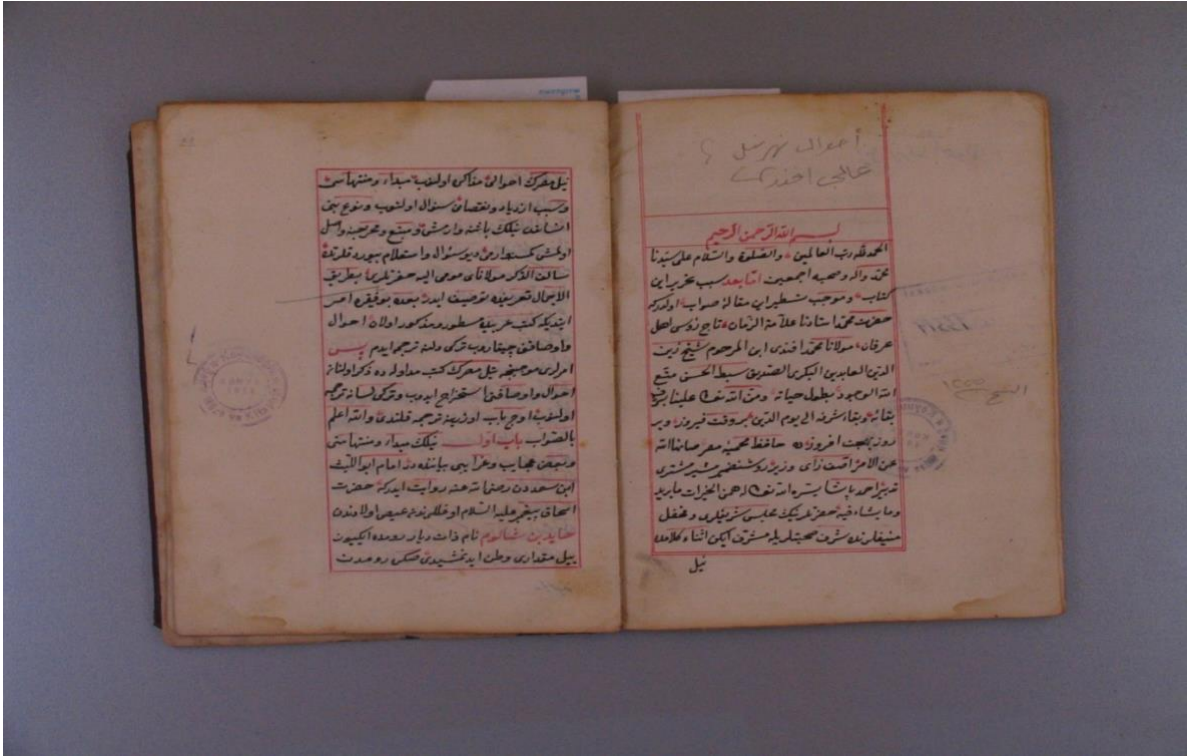 أحوال نهر نيل ؟
بسم الله الرحمن الرحيم
الحمد لله رب العالمين والصلوة والسلام على سيدنا
محمد واله وصحبه اجمعين اما بعد سبب تحرير اين
كتاب و موجب تسطير اين مقالهٔ صواب اولدركه
حضرت استادنا علامة الزمان تاج رؤس اهل
عرفان مولانا محمد افندى ابن المرحوم شيخ زين
الدين العابدين البكرى الصديق سبط الحسن متع
الله الوجود بطول حياته ومن الله تعالى علينا
بقائه وبقاء شرفه الى يوم الدين بر وقت فيروز وبر
روز بهجت افروزده حافظ محميهٔ مصر صانها الله
عن الاصر آصف راى وزير روشنضمير مشترى
تدبير احمد پاشا يسره الله تعالى من الخيرات ما يريد
وما يشاء حضرتلرينك مجلس شريفلرى و محفل
منيفلرنده شرف صحبتلريله مشرف ايكن اثناء كلامده
نيل
نيل مصرك احوالى مذاكره اولنوب مبداء ومنتهاسى
وسبب ازدياد ونقصانى سؤال اولنوب ونوع بنى
انساندن نيلك باشنه وارمش و منبع ومخرجنه واصل
اولمش كمسه وارمى ديو سؤال و استعلام بيوردقلرنده
سالف الذكر مولاناى مومى اليه حضرتلرى بطريق
الاجمال تعريف و توصيف ايدوب بعده بو فقيره امر
ايتديلكه كتب عربيده مسطور ومذكور اولان احوال
واوصافى چيقاروب تركى دلنه ترجمه ايدم پس
امرلرى موجبنجه نيل مصرك كتب متداولده ذكر اولنان
احوال و اوصافى استخراج ايدوب وتركى لسانه ترجمه
اولنوب اوچ باب اوزرينه ترجمه قلندى والله اعلم
بالصواب باب اول نيلك مبداء ومنتهاسى
وبعض عجايب وغرايبى بياننده در امام ابو الليث
ابن سعددن رحمة الله عنه روايت ايدر كه حضرت
اسحاق پيغمبر عليه السلام اوغللرندن عيص اولادندن
نام ذات ديار رومده
ييل مقدارى وطن